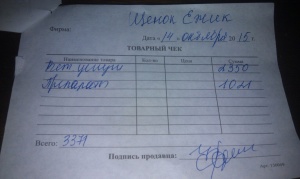 Щенок Ежик
Фирма:
Дата « 14 » октября 2015 г.
ТОВАРНЫЙ ЧЕК
Наименование товара Кол-во Цена Сумма
Вет услуги 2350
Препараты 1021
Всего: 3371
Подпись продавца: